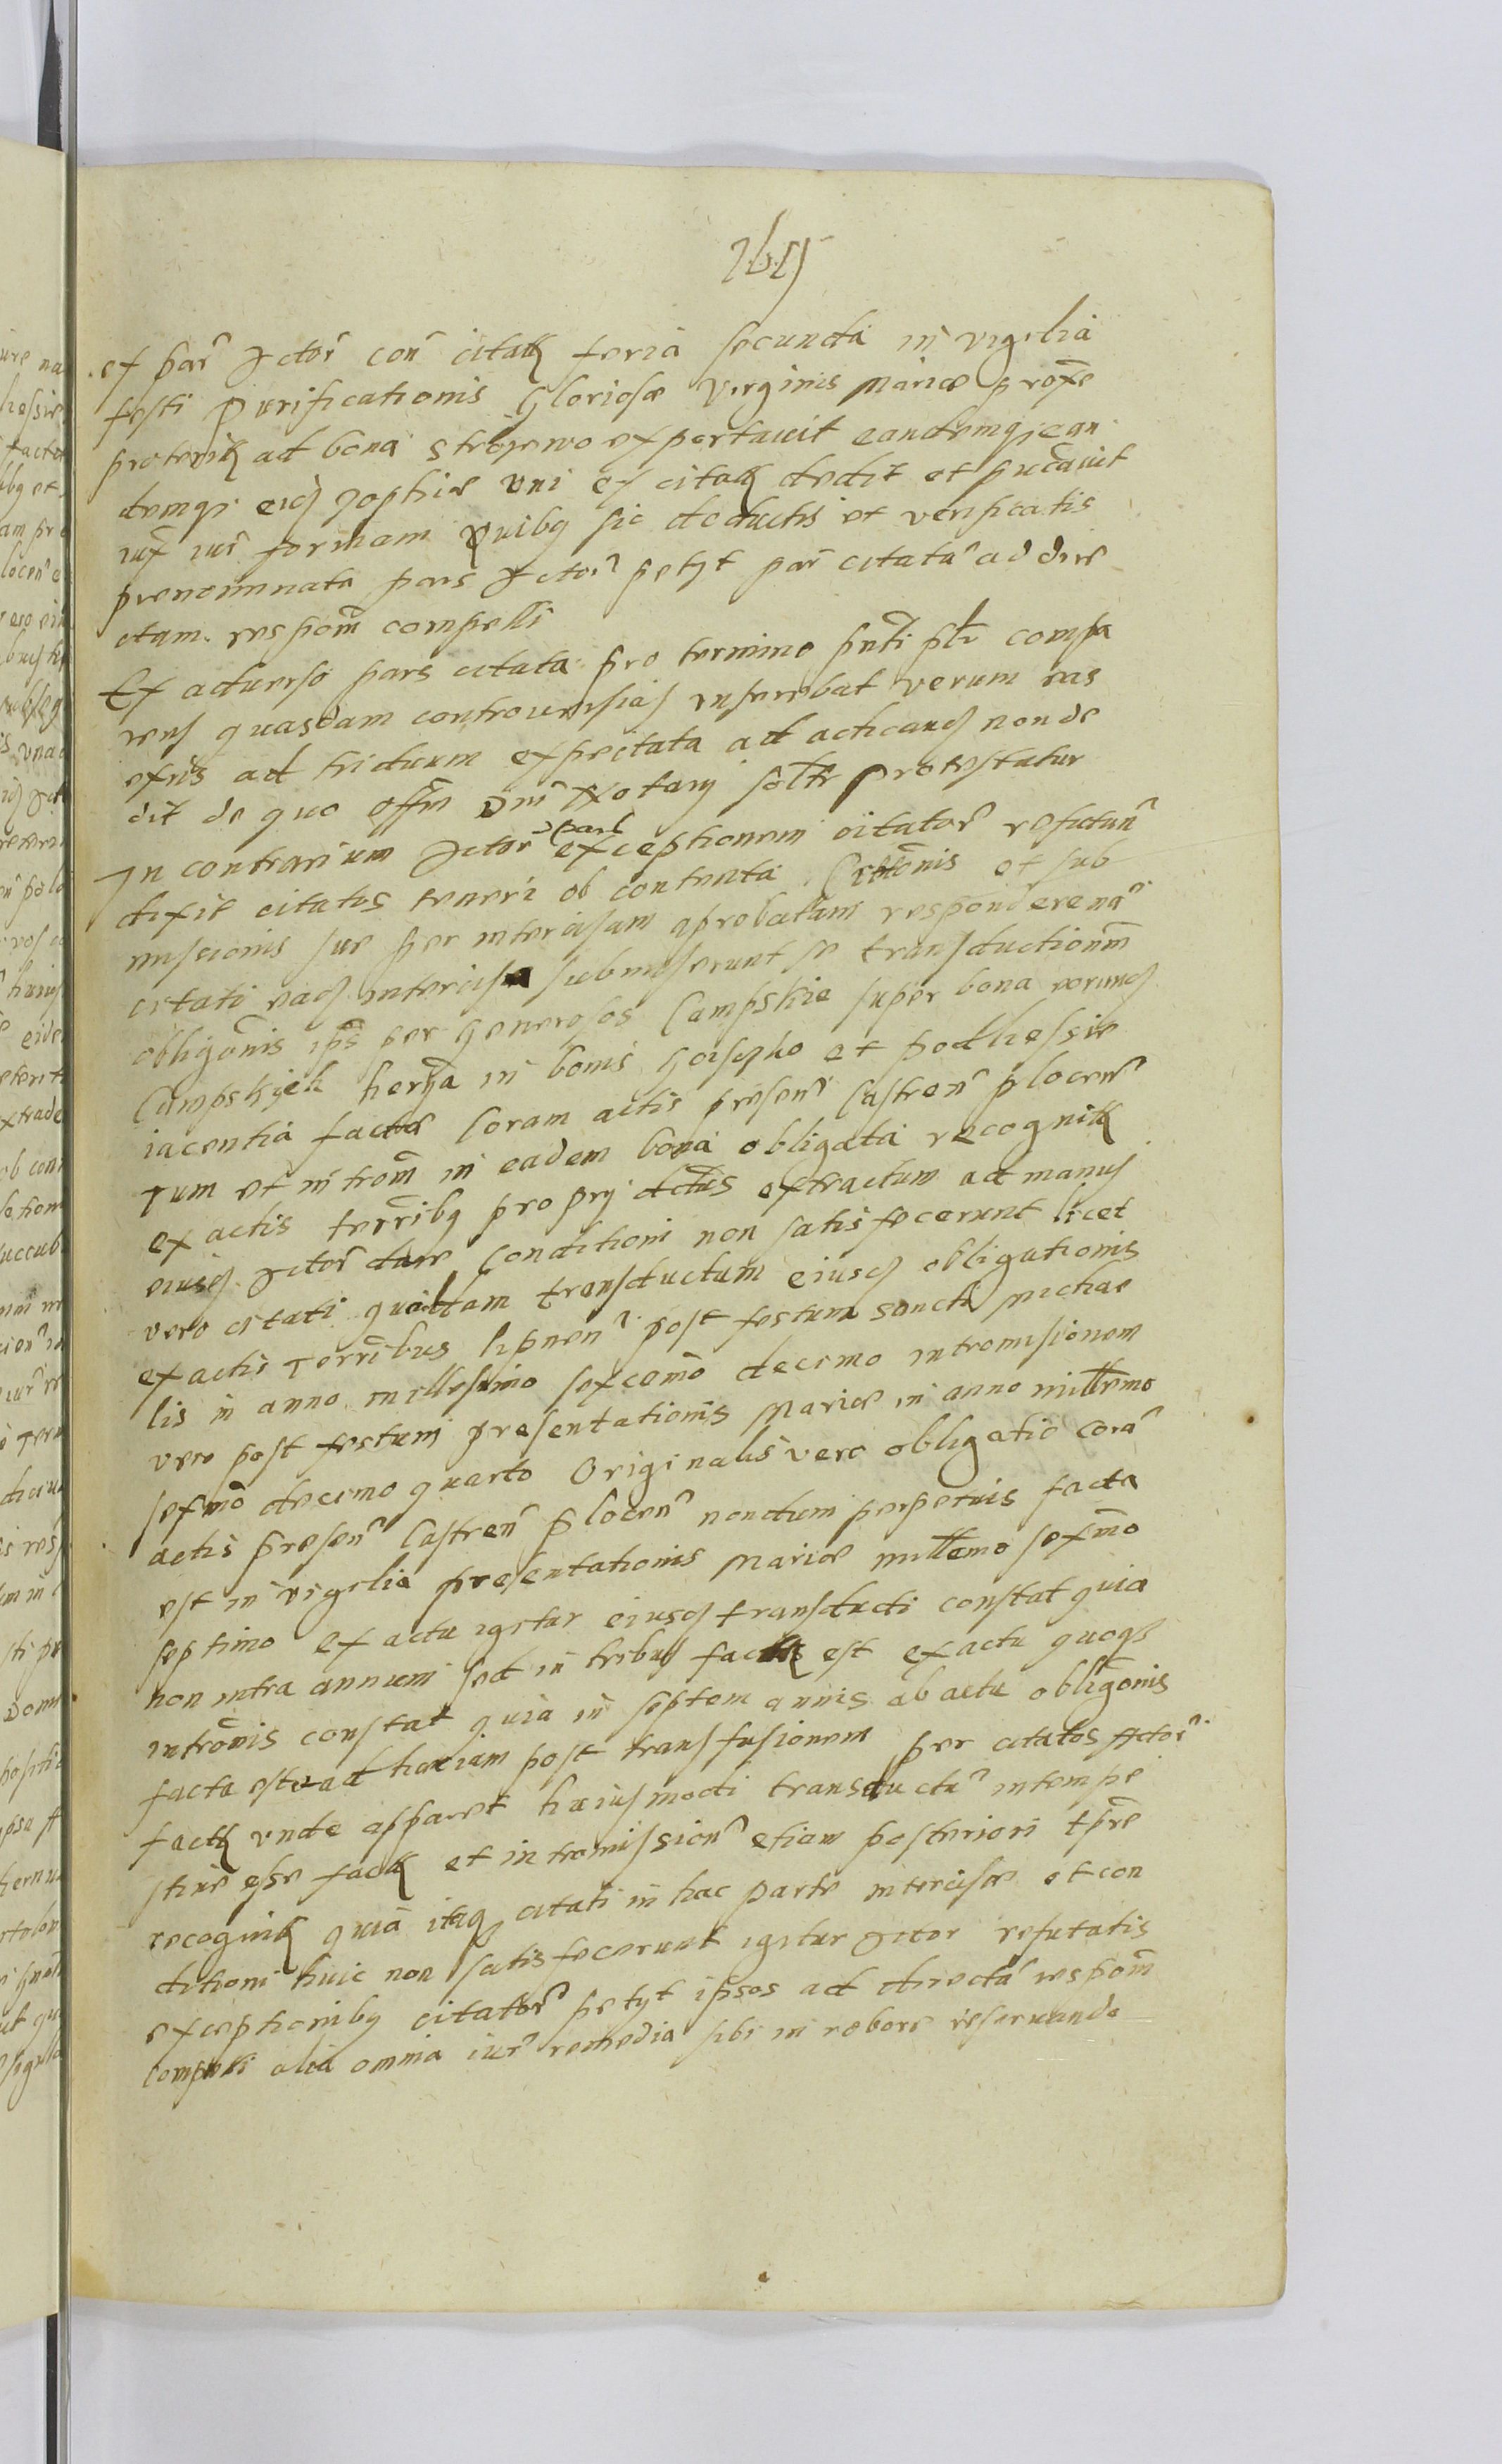 1615
ex par Actor con citatis feria secunda in vigilia
festi Purificationis Gloriosæ Virginis Mariæ proxe
preteritis ad bona Strozewo exportavit eandemq; ean
demq; eid Zophiæ uni ex citatis dedit et
iux iur formam Quibq sic deductis et verificatis
prenominata pars Actor petyt par citata ad dire
ctam respom compelli
Ex adverso pars citata pro termino pnti pltr compa
rens quasdam controversias inserebat verum eas
ad triduum expectata ad acticand non de
dit de quo offm Dni Notary soltr protestatur
In contrarium Actor pars exceptionem citator refutan
dixit citatos teneri ob contenta et sub
missionis sue per intercisam aprobatam respondere na
citati ead intercisa submiserunt se transductionem
obligonis ips per Generosos Campskie super bona eorund
Campskich herya in bonis et Podliessie
iacentia facta Coram actis presen Castren Plocen
Tum et introm in eadem bona obligata recognitis
ex actis terribq propry extractum ad manus
eiusd Actor dare Conditioni non satisfecerunt licet
vero citati transductam eiusd obligationis
ex actis Terribus Lipnen post festum Sancti Michae
lis in anno millesimo sexcemo decimo intromisionem
vero post festum presentationis Mariæ in anno millemo
sexmo decimo quarto Originalis vero obligatio cora
actis presen Castren Plocen nondum perpetuis facta
est in vigilia presentationis Mariæ millemo sexmo
septimo Ex actu igitur eiusd transducti constat quia
non intra annum sed in tribus est ex actu quoq
intronis constat quia in septem annis ab actu obligonis
facta est post transfusionem per citatos Actor
factis unde apparet huiusmodi transductu intempe
stive esse factis et intromission etiam posteriori tpre
recognitis quia itaq citati in hac parte intercisæ et con
ditioni huic non satisfecerunt igitur Actor refutatis
exceptionibq citator petyt ipsos ad directa respom
compelli alia omnia iur remedia sibi in robore reservando